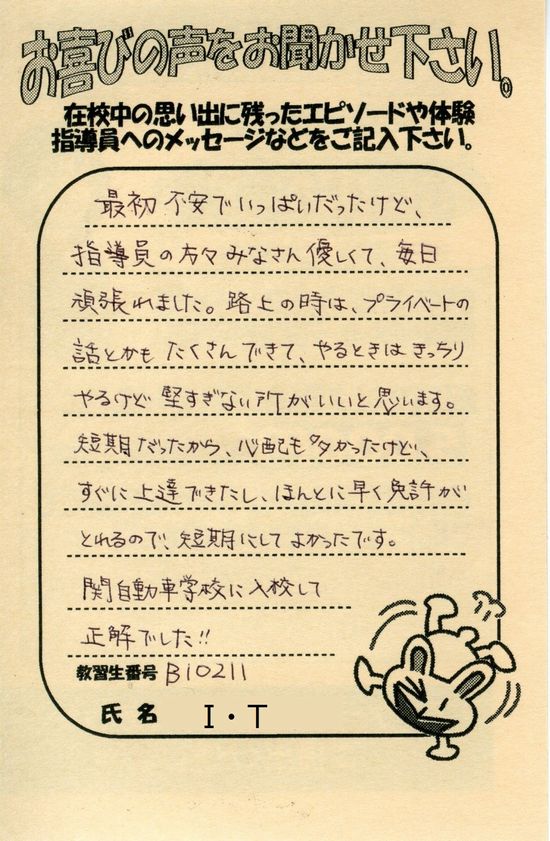 お喜びの声をお聞かせ下さい。
在校中の思い出に残ったエピソードや体験
指導員へのメッセージなどをご記入下さい。
最初 不安でいっぱいだったけど、
指導員の方々みなさん優しくて、毎日
頑張れました。路上の時は、プライベートの
話とかも たくさんできて、やるときは きっちり
やるけど 堅すぎない所がいいと思います。
短期だったから、心配も多かったけど、
すぐに上達できたし、ほんとに早く免許が
とれるので、短期にして よかったです。
関自動車学校に入校して
正解でした!!
教習生番号 B10211
氏名 I・T